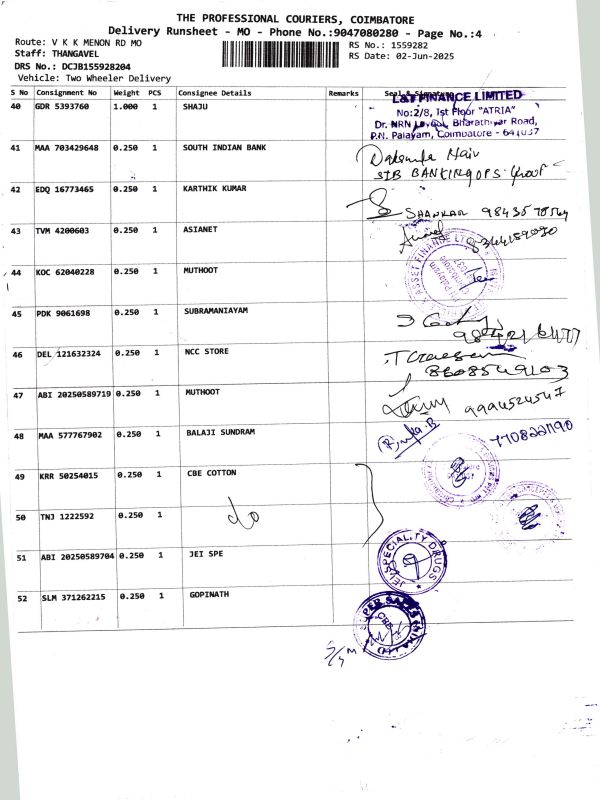 THE PROFESSIONAL COURIERS, COIMBATORE
Delivery Runsheet - MO - Phone No.:9047080280 - Page No.:4
Route: V K K MENON RD MO
RS No.: 1559282
Staff: THANGAVEL
RS Date: 02-Jun-2025
DRS No.: DCJB155928204
Vehicle: Two Wheeler Delivery
S No Consignment No Weight PCS Consignee Details Remarks Seal & Signature
40 GDR 5393760 1.000 1 SHAJU
L&T FINANCE LIMITED
No:2/8, 1st Floor "ATRIA"
Dr. NRN Bharathiyar Road,
P.N. Palayam, Coimbatore - 641037
41 MAA 703429648 0.250 1 SOUTH INDIAN BANK
Nair
SIB BANKING OPS Group
42 EDQ 16773465 0.250 1 KARTHIK KUMAR
SHANKAR
43 TVM 4200603 0.250 1 ASIANET
44 KOC 62040228 0.250 1 MUTHOOT
ASSET FINANCE
45 PDK 9061698 0.250 1 SUBRAMANIAYAM
46 DEL 121632324 0.250 1 NCC STORE
8608549103
47 ABI 20250589719 0.250 1 MUTHOOT
9994524547
48 MAA 577767902 0.250 1 BALAJI SUNDRAM
7708221190
49 KRR 50254015 0.250 1 CBE COTTON
50 TNJ 1222592 0.250 1
do
51 ABI 20250589704 0.250 1 JEI SPE
JEI SPECIALITY DRUGS
52 SLM 371262215 0.250 1 GOPINATH
SUPER SALES
CBE